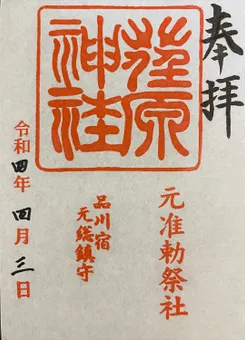 奉拝
荏原神社
元准勅祭社
品川宿
元総鎮守
令和四年四月三日